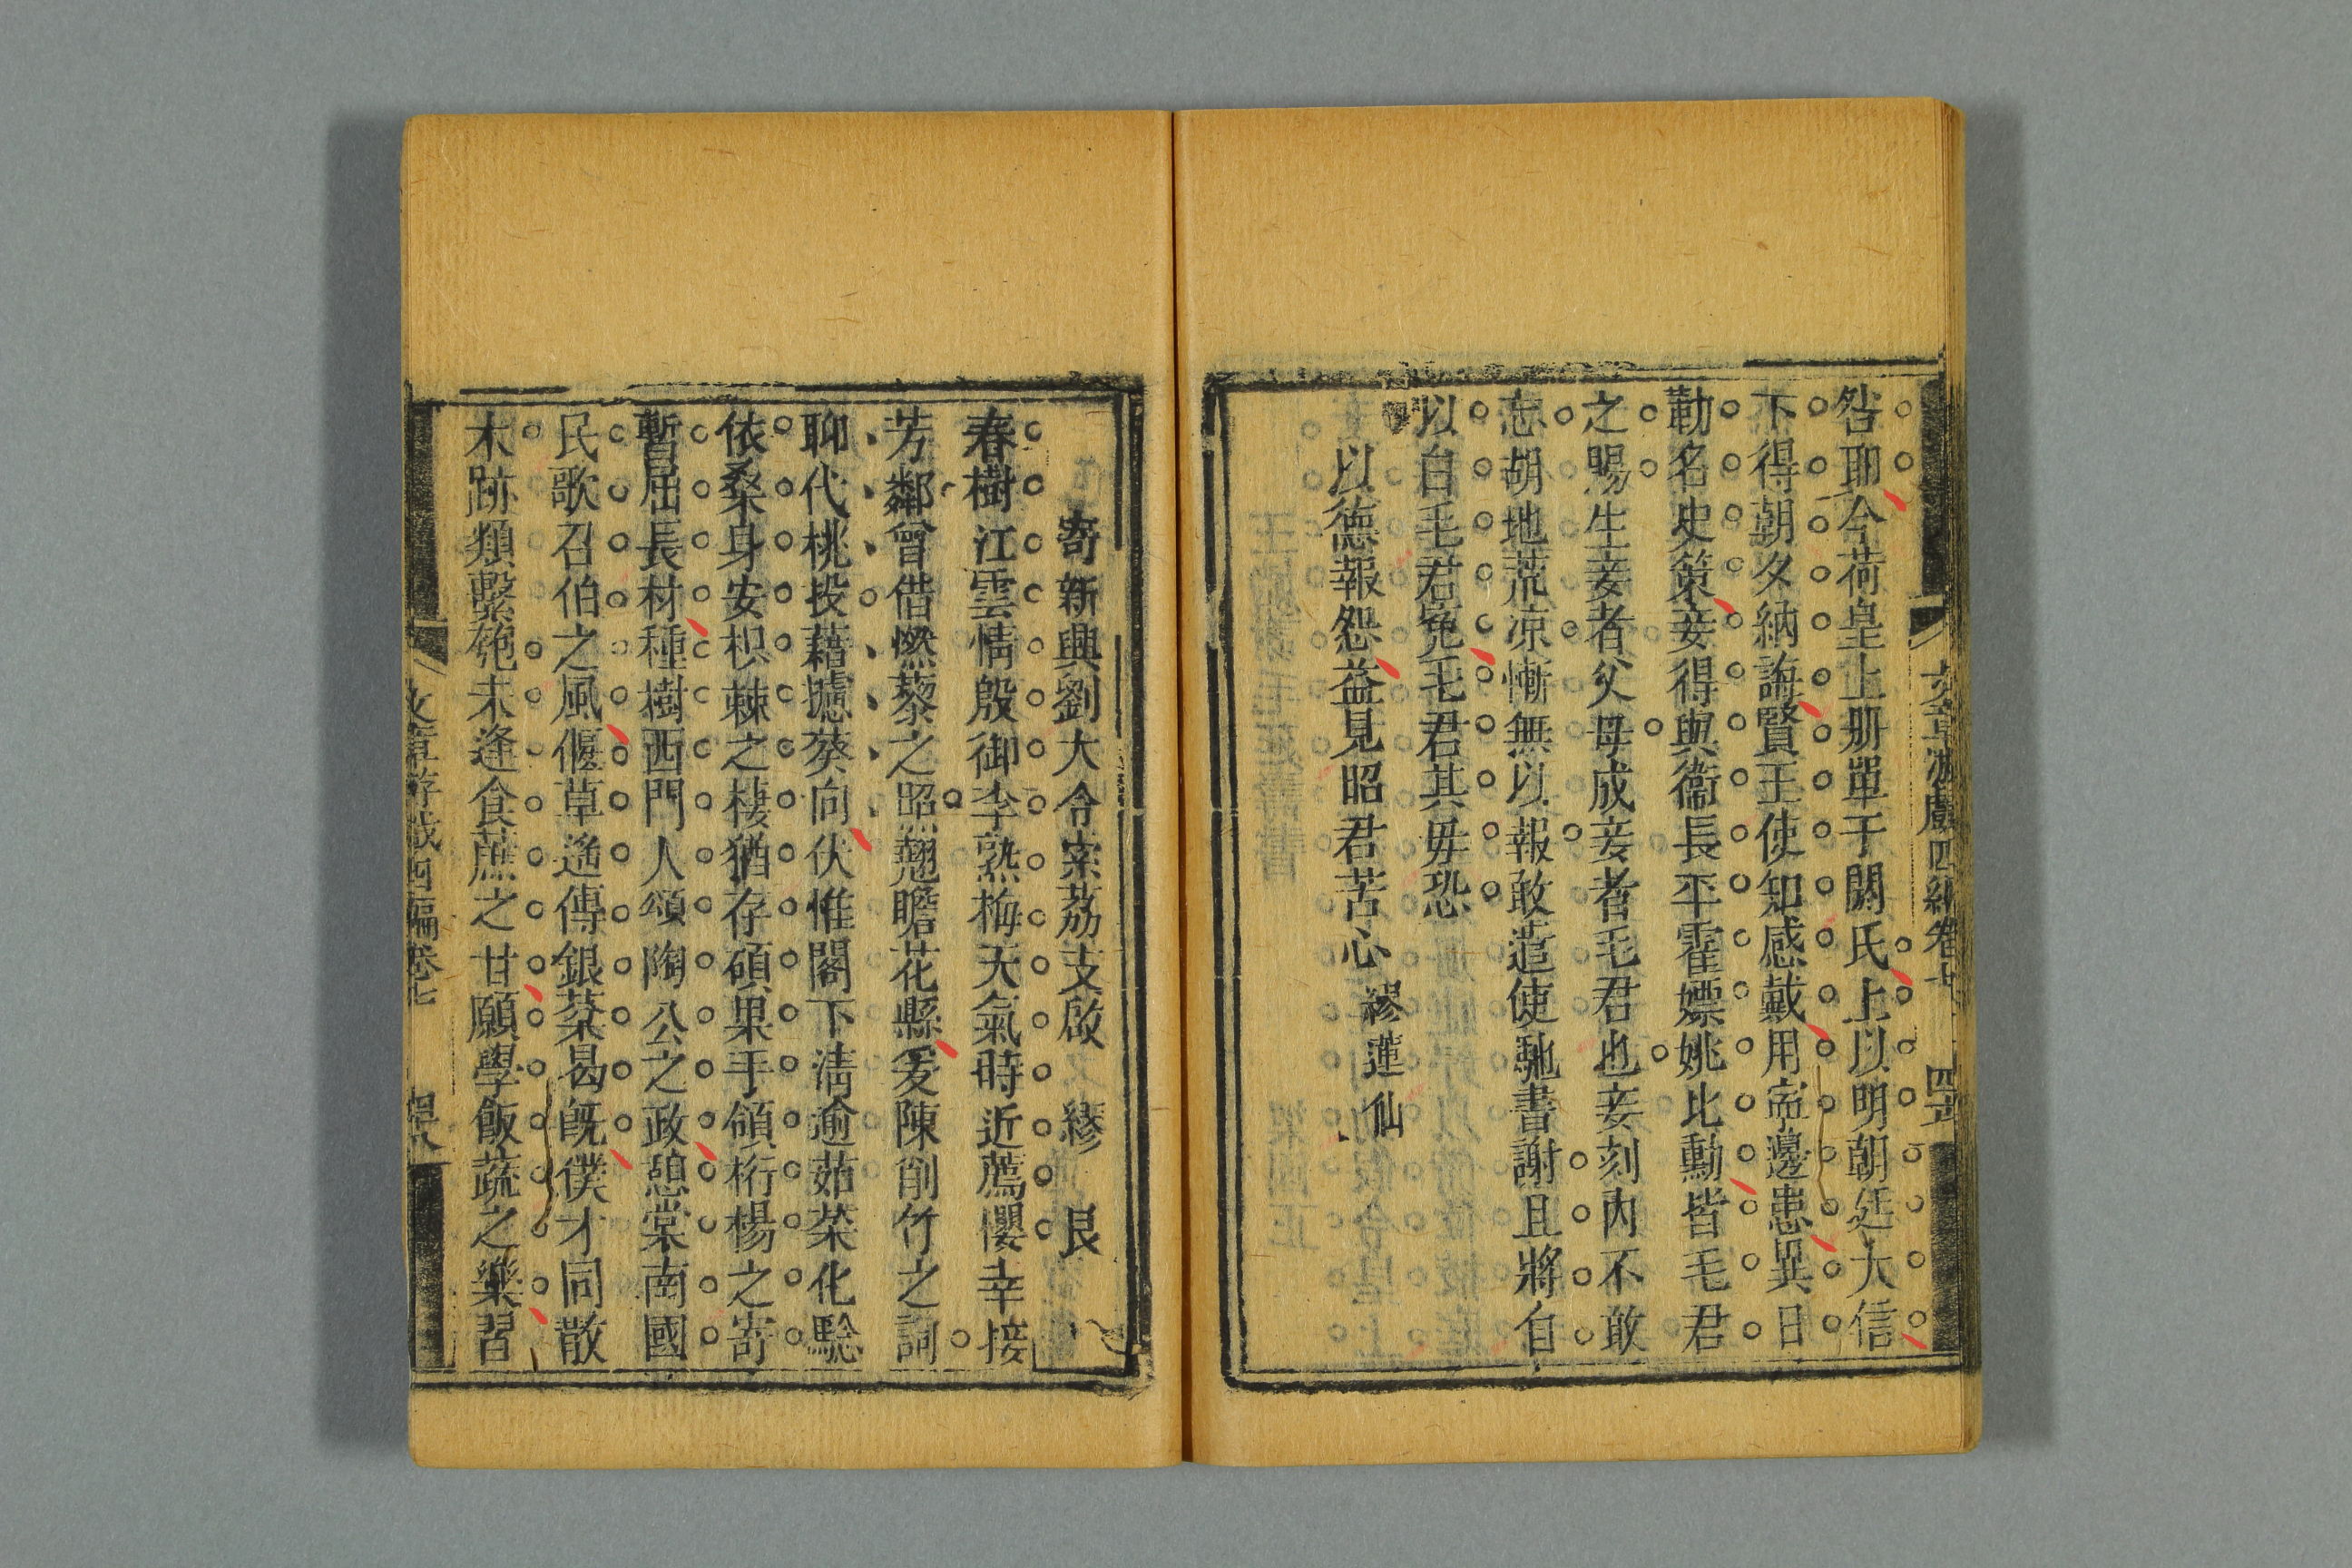 文章游戲四編卷七
咎耶今荷皇上册單于閼氏上以明朝廷大信
下得朝夕納誨賢王使知感戴用寧邊患異日
勒名史策妾得與衞長平霍嫖姚比勳皆毛君
之賜生妾者父母成妾者毛君也妾刻內不敢
忘胡地荒凉慚無以報敢遣使馳書謝且將自
以白毛君寃毛君其毋恐
以德報怨益見昭君苦心 繆蓮仙
寄新興劉大令索荔支啟 繆艮
春樹江雲情殷御李熟梅天氣時近薦櫻幸接
芳鄰曾借燃藜之照翹瞻花縣爰陳削竹之詞
聊代桃投藉攄葵向伏惟閣下清逾茹蘗化騐
依桑身安枳棘之棲猶存碩果手領桁楊之寄
暫屈長材種樹西門人頌陶公之政憩棠南國
民歌召伯之風偃草遙傳銀菜曷旣僕才同散
木跡類繫匏未逢食蔗之甘願學飯蔬之樂習
文章游戲四編卷七